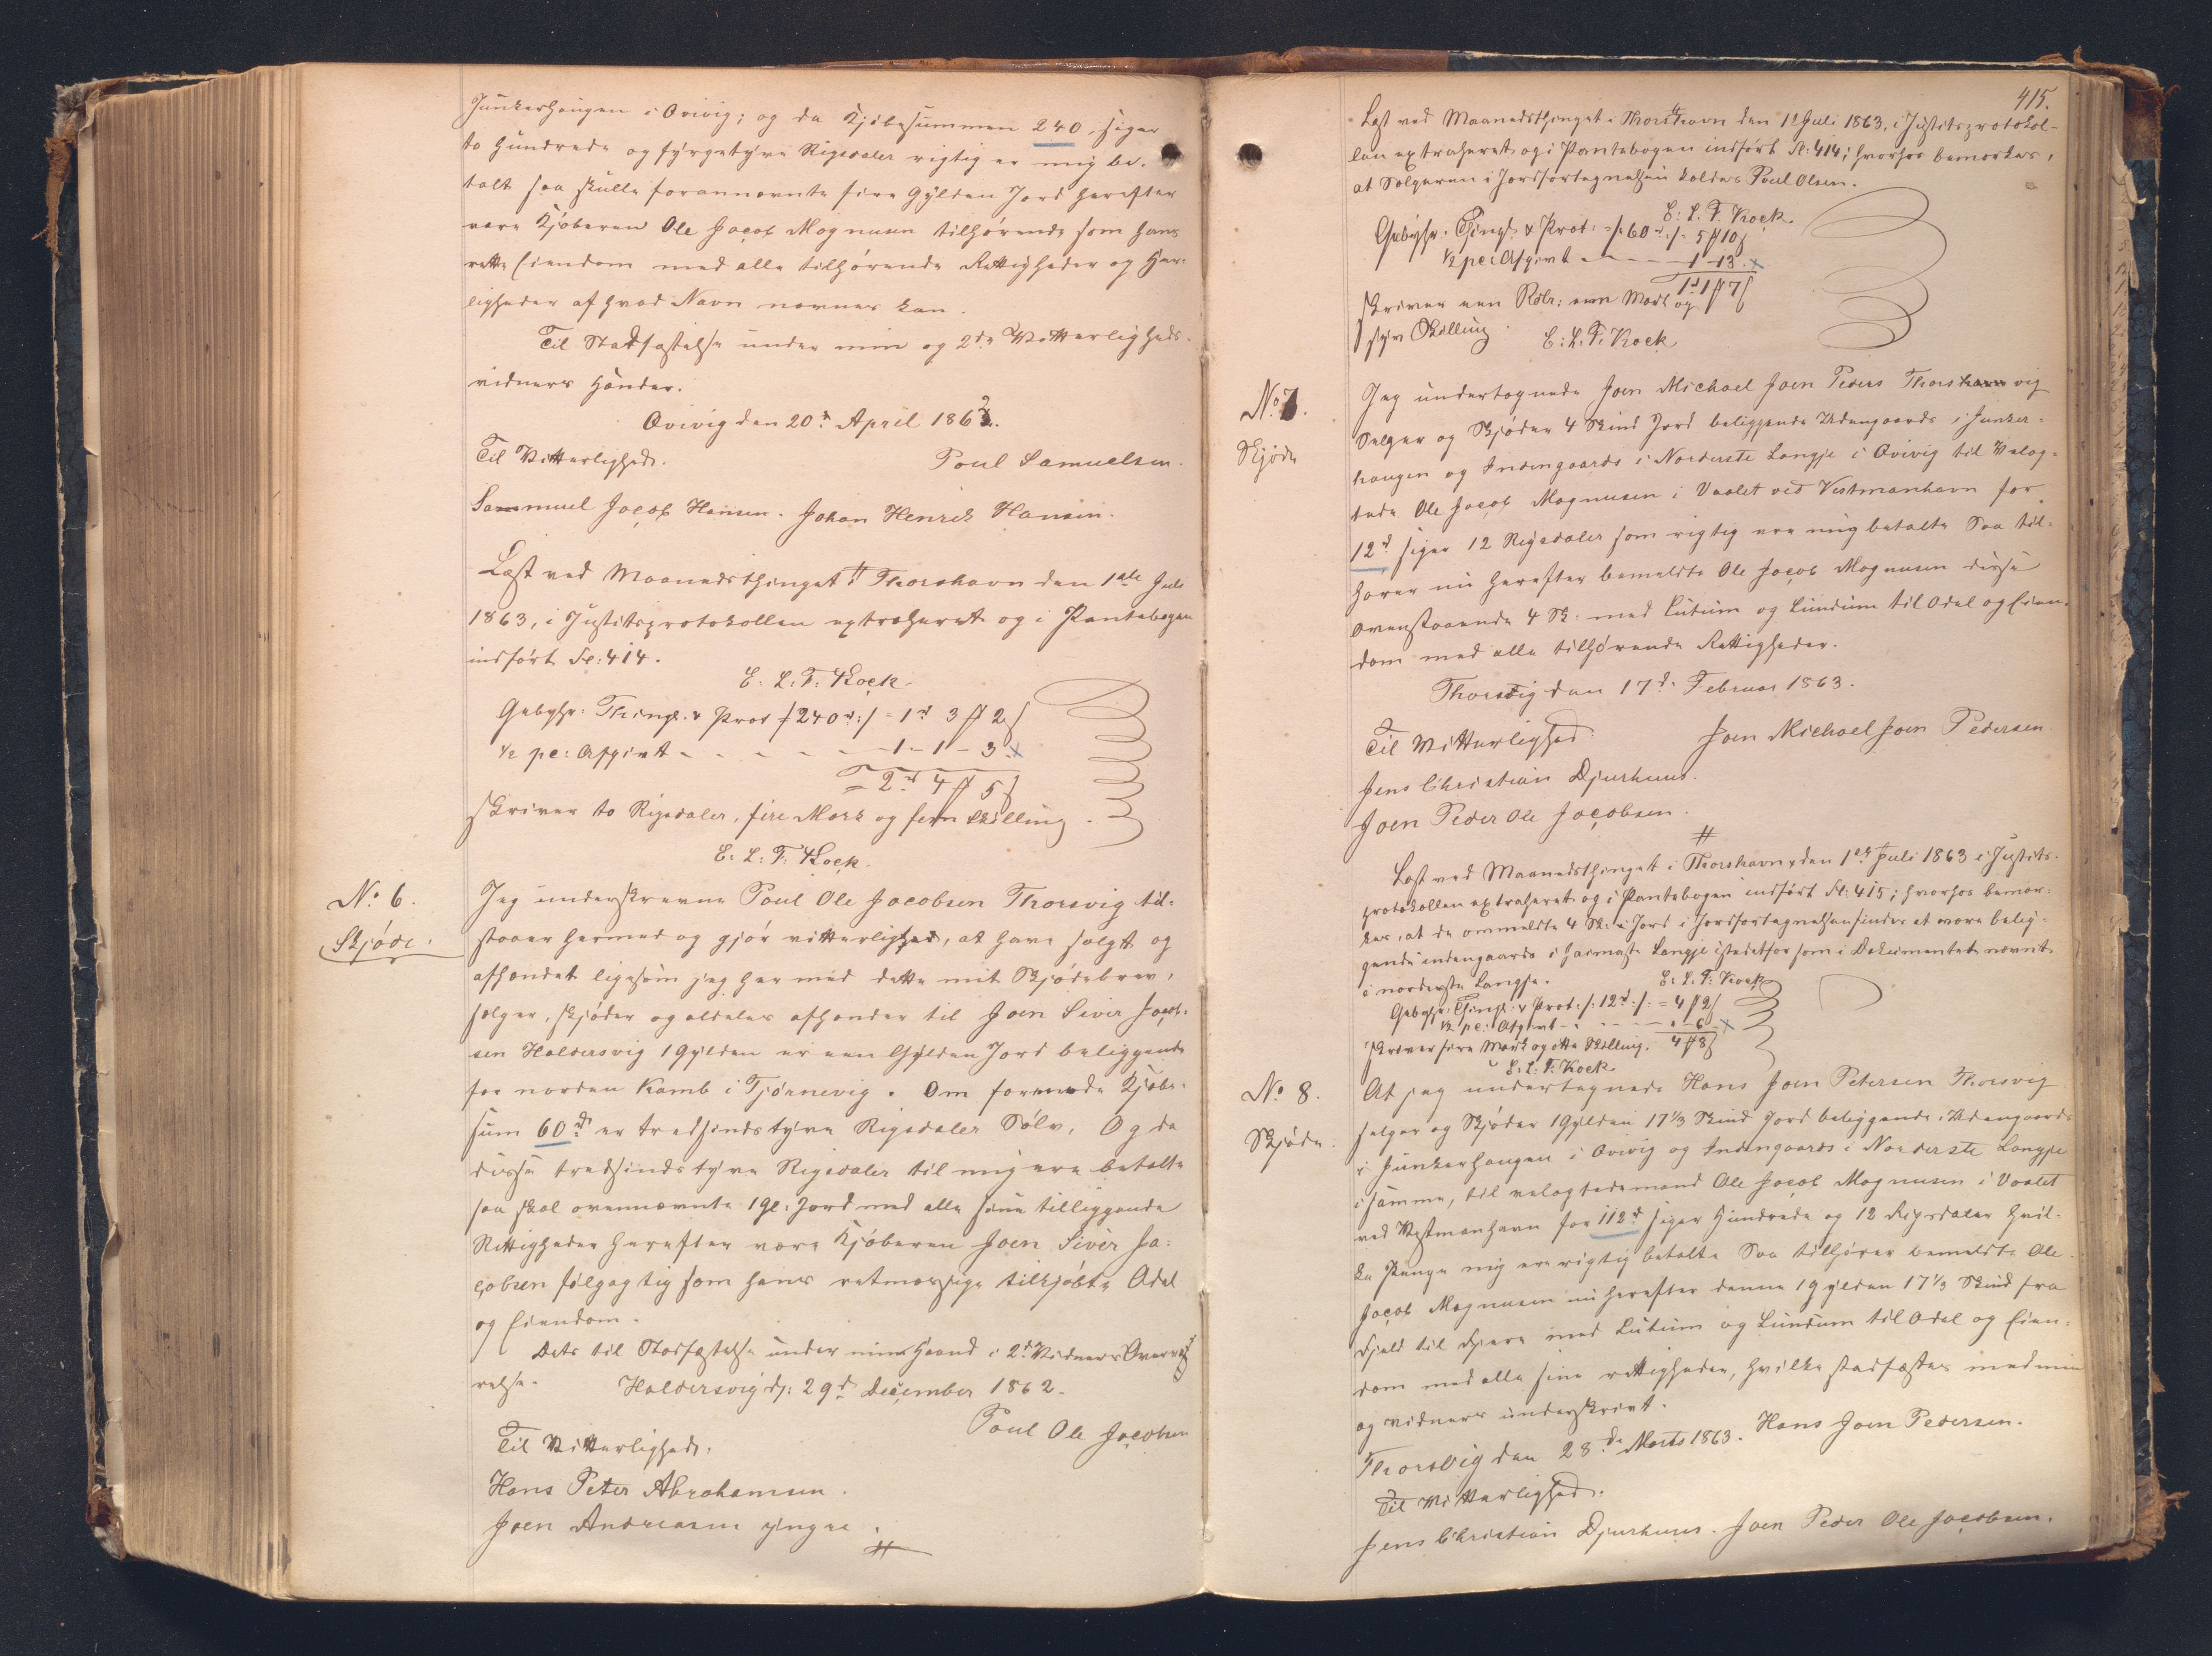 Junkerhaugen i Qvivig; og da Kjøbesummen 240, siger
to Hundrede og fyrgetyve Rigsdaler rigtig er mig be-
talt saa skulle forannævnte fire Gylden Jord herefter
være Kjøberen Ole Jacob Magnusen tilhørende som hans
rette Eiendom med alle tilhørende Rettigheder og Her-
ligheder af hvad Navn nævnes kan.
Til Stadfæstelse under min og 2de Vitterligheds-
vidners Hænder.
Qvivig den 20de April 1862.
Til Vitterlighed.
Poul Samuelsen.
Sammuel Jacob Hansen. Johan Henrik Hansen.
Læst ved Maanedsthinget i Thorshavn den 1ste Juli
1863, i Justitsprotokollen extraheret og i Pantebogen
indført Fl: 414.
E: L: F: Kock.
Gebyhr: Thingl. & Prot /:240rd:/ = 1rd 3 # 2 s
½ pc: Afgivt - - - - - 1 - 1 - 3. x
= 2rd 4 # 5 s
skriver to Rigsdaler, fire Mark og fem Skilling.
E: L: F: Kock.
No: 6.
Skjøde.
Jeg underskrevne Poul Ole Jacobsen Thorsvig til-
staaer hermed og gjør vitterlighed, at have solgt og
afhændet ligesom jeg her med dette mit Skjødebrev,
sælger, skjøder og aldeles afhænder til Joen Siver Jacob-
sen Haldersvig 1 Gylden er een Gylden Jord beliggende
for norden Kamb i Tjørnevig. Om forenede Kjøbe-
sum 60rd er tredsindstyve Rigsdaler Sølv, Og da
disse tredsindstyve Rigsdaler til mig ere betalte
saa skal ovennævnte 1 Gl: Jord med alle sine tilliggende
Rettigheder herefter være Kjøberen Joen Siver Ja-
cobsen følgagtig som hans retmæssige tilkjøbte Odel
og Eiendom.
Dets til Stadfæstelse under min Haand i 2de Vidners Overvæ-
relse.
Haldersvig d: 29d December 1862.
Poul Ole Jacobsen
Til Vitterlighed.
Hans Peter Abrahamsen.
Joen Andreasen yngre.
#
415.
Læst ved Maanedsthinget i Thorshavn den 1ste Juli 1863, i Justitsprotokol-
len extraheret og i Pantebogen indført Fl: 414; hvorhos bemærkes,
at Sælgeren i Jordfortegnelsen kaldes Poul Olsen.
E: L: F. Kock.
Gebyhr. Thingl. & Prot: /:60rd:/ = 5 # 10 s
½ pc: Afgivt - - - - 1 - 13. x
1rd 1 # 7 s
skriver een Rdlr: een Mark og
syv Skilling.
E: L: F: Kock
No: 7.
Skjøde
Jeg undertegnede Joen Michael Joen Peders Thorshavn vig
Sælger og Skjøder 4 Skind Jord beliggende Udengaards i Junker-
haugen og Indengaards i Norderste Langje i Qvivig til Velag-
tede Ole Jacob Magnusen i Vaalet ved Vestmanhavn for
12rd siger 12 Rigsdaler som rigtig ere mig betalte Saa til-
hører nu herefter bemeldte Ole Jacob Magnusen disse
ovenstaaende 4 Sk: med Lutum og Lundum til Odel og Eien-
dom med alle tilhørende Rettigheder.
Thorsvig den 17d Februar 1863.
Til Vitterlighed.
Joen Michael Joen Pedersen
Jens Christian Djurhuus.
Joen Peder Ole Jacobsen.
#
Læst ved Maanedsthinget i Thorshavn den 1ste Juli 1863 i Justits-
protokollen extraheret og i Pantebogen indført Fl: 415; hvorhos bemær-
kes, at de ommeldte 4 Sk: Jord i Jordfortegnelsen findes at være belig-
gende indengaards i Langje istedetfor som i Dokumentet nævnt
i norderste Langje.
E: L: F: Kock
Gebyhr: Thingl. & Prot: /:12rd:/ = 4 # 2 s
½ pc: Afgivt - - - - - 6 - x
skriver fire Mark og otte Skilling. 4 # 8 s
E: L: F: Kock.
No: 8.
Skjøde.
At jeg undertegnede Hans Joen Petersen Thorsvig
sælger og Skjøder 1 Gylden 17⅓ Skind Jord beliggende Udengaards
i Junkerhaugen i Qvivig og Indengaards i Norderste Langje
i samme, til velagtedemand Ole Jacob Magnusen i Vaalet
ved Vestmanhavn for 112rd siger Hundrede og 12 Rigsdaler hvil-
ke Penge mig ere rigtig betalte Saa tilhører bemeldte Ole
Jacob Magnusen nu herefter denne 1 Gylden 17⅓ Skind fra
Fjeld til Fjære med Lutum og Lundum til Odel og Eien-
dom med alle sine rettigheder, hvilke stadfæstes med min
og vidners underskrivt.
Thorsvig den 28de Marts 1863. Hans Joen Pedersen.
Til Vitterlighed.
Jens Christian Djurhuus. Joen Peder Ole Jacobsen.